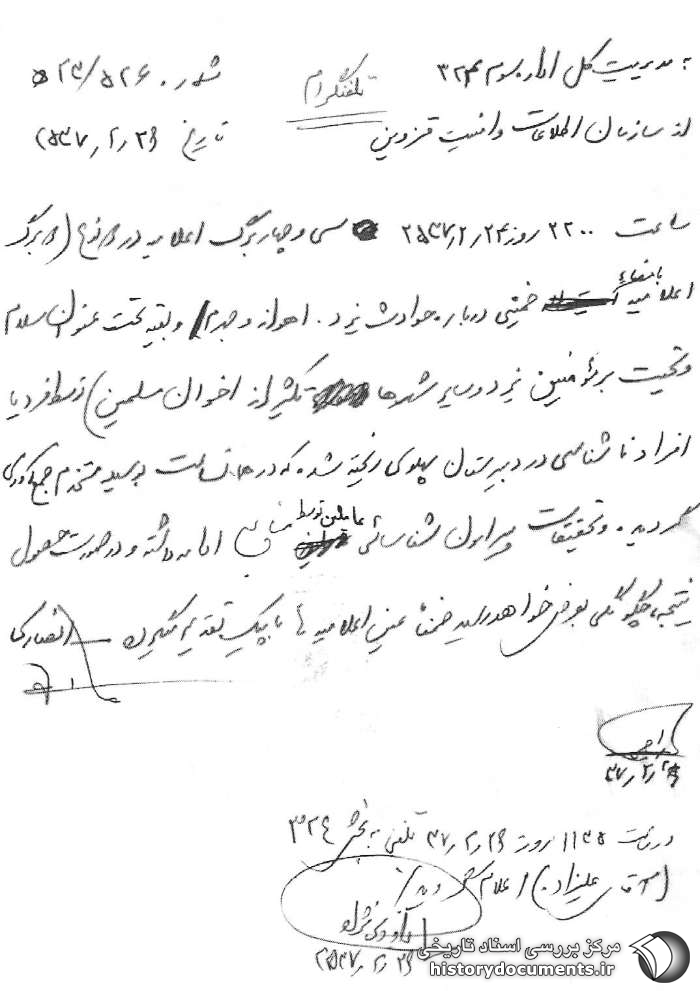 به مدیریت کل اداره سوم ۳۲۴
تلفنگرام
شماره ۵۲۳/۵۲۶
از سازمان اطلاعات و امنیت قزوین
تاریخ ۲۵۳۷/۲/۲۶
ساعت ۲۲۰۰ روز ۲۵۳۷/۲/۲۴ سی و چهار برگ اعلامیه در دو نوع (دو برگ
اعلامیه بامضاء خمینی درباره حوادث یزد، اهواز و جهرم و بقیه تحت عنوان سلام
و تحیت بر مؤمنین یزد و سایر شهرها تکثیر از اخوان مسلمین) توسط فرد یا
افراد ناشناسی در دبیرستان پهلوی ریخته شده که در همان ساعت بوسیله مستخدم جمع‌آوری
گردیده. و تحقیقات پیرامون شناسائی عاملین توسط منابع ادامه داشته و در صورت حصول
نتیجه چگونگی بعرض خواهد رسید ضمناً عین اعلامیه‌ها با پیک تقدیم میگردد – انصاری
۳۷/۲/۲۶
در ساعت ۱۱۳۵ روز ۳۷/۲/۲۶ تلفنی به بخش ۳۲۴
(آقای علیزاده) اعلام گردید
۲۵۳۷/۲/۲۶
مرکز بررسی اسناد تاریخی
historydocuments.ir